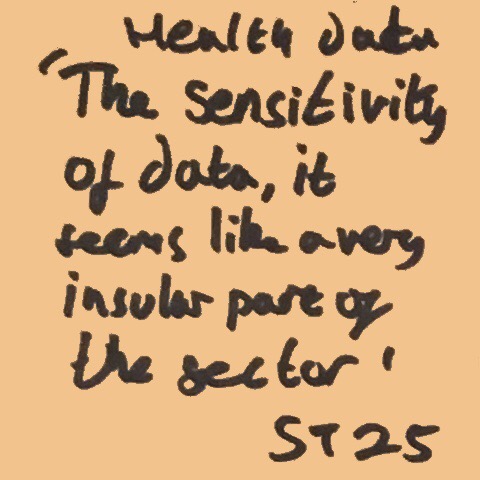 Health data
'The sensitivity
of data, it
seems like a very
insular part of
the sector'
ST25